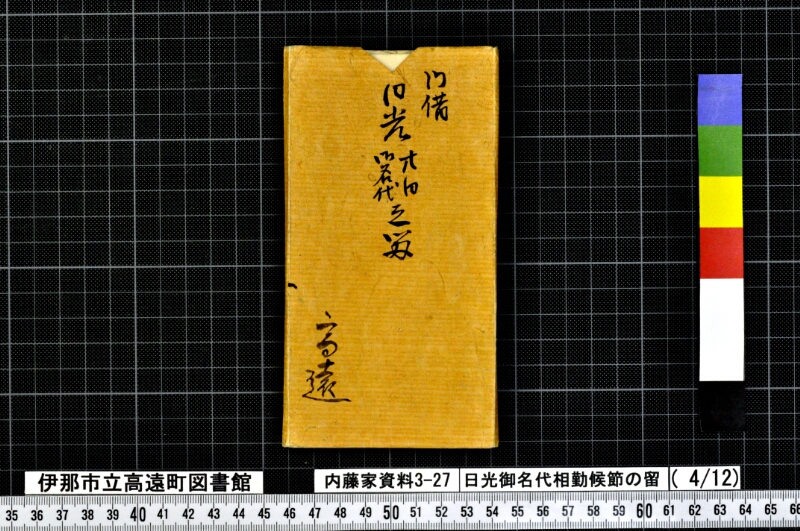 内借
日光
御名代
之留
高遠
伊那市立高遠町図書館
内藤家資料3-27
日光御名代相勤候節の留
( 4/12)
35 36 37 38 39 40 41 42 43 44 45 46 47 48 49 50 51 52 53 54 55 56 57 58 59 60 61 62 63 64 65 66